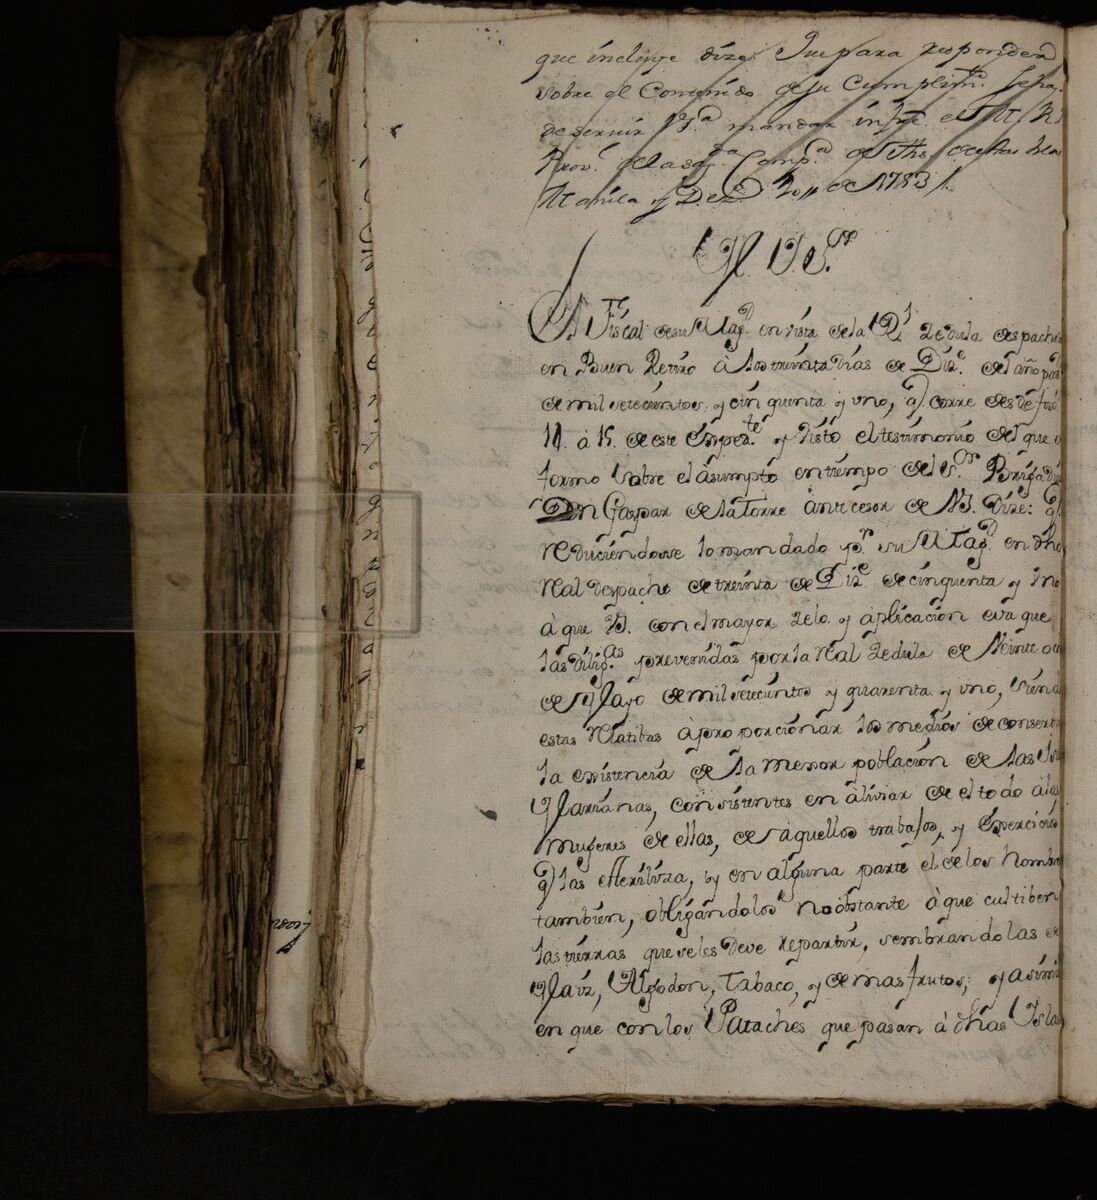 que incluye dize Que para responder
sobre el Contenido de su Cumplim.to se ha
de servir V.S.a mandar infr.e el M. R.
Prov.l de la sag.da Comp.a de Jhs de estas Islas
Manila y Diz.e 20,, de 1753
M. Y. S.or
El Fiscal de su Mag.d en vista de la R.l Zedula despacha
en Buen Retiro à los treinta dias de Diz.e del año pas
de mil setecientos, y cinquenta y uno, q.e corre desde fox.
11. à 15. de este Expez.te y visto el testimonio del que
formo sobre el asumpto en tiempo del S.or Brigadie
Don Gaspar de la Torre antecesor de V.S. Dize: q.e
reduciendose lo mandado p.r su Mag.d en dho
Real despacho de treinta de Diz.e de cinquenta y uno
à que V.S. con el mayor zelo y aplicacion evaque
las dilig.as prevenidas por la Real Zedula de Veinte oc
de Mayo de mil setecientos y quarenta y uno, siend
estas relatibas à proporcionar los medios de conserba
la existencia de la menor poblacion de las Isl
Marianas, consistentes en aliviar de el todo à las
mugeres de ellas, de aquellos trabajos, y Exercicios
q.e las esteriliza, y en alguna parte el de los hombre
tambien, obligandolos no obstante à que cultiben
las tierras que se les deve repartir, sembrandolas de
Maiz, Algodon, Tabaco, y de mas frutos; y asimi
en que con los Pataches que pasan à dhas Yslas